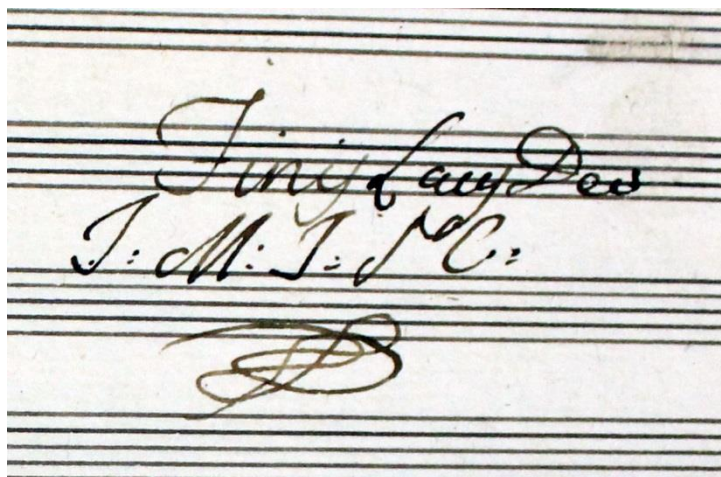 Finis Laus Deo
J: M: J: N C: